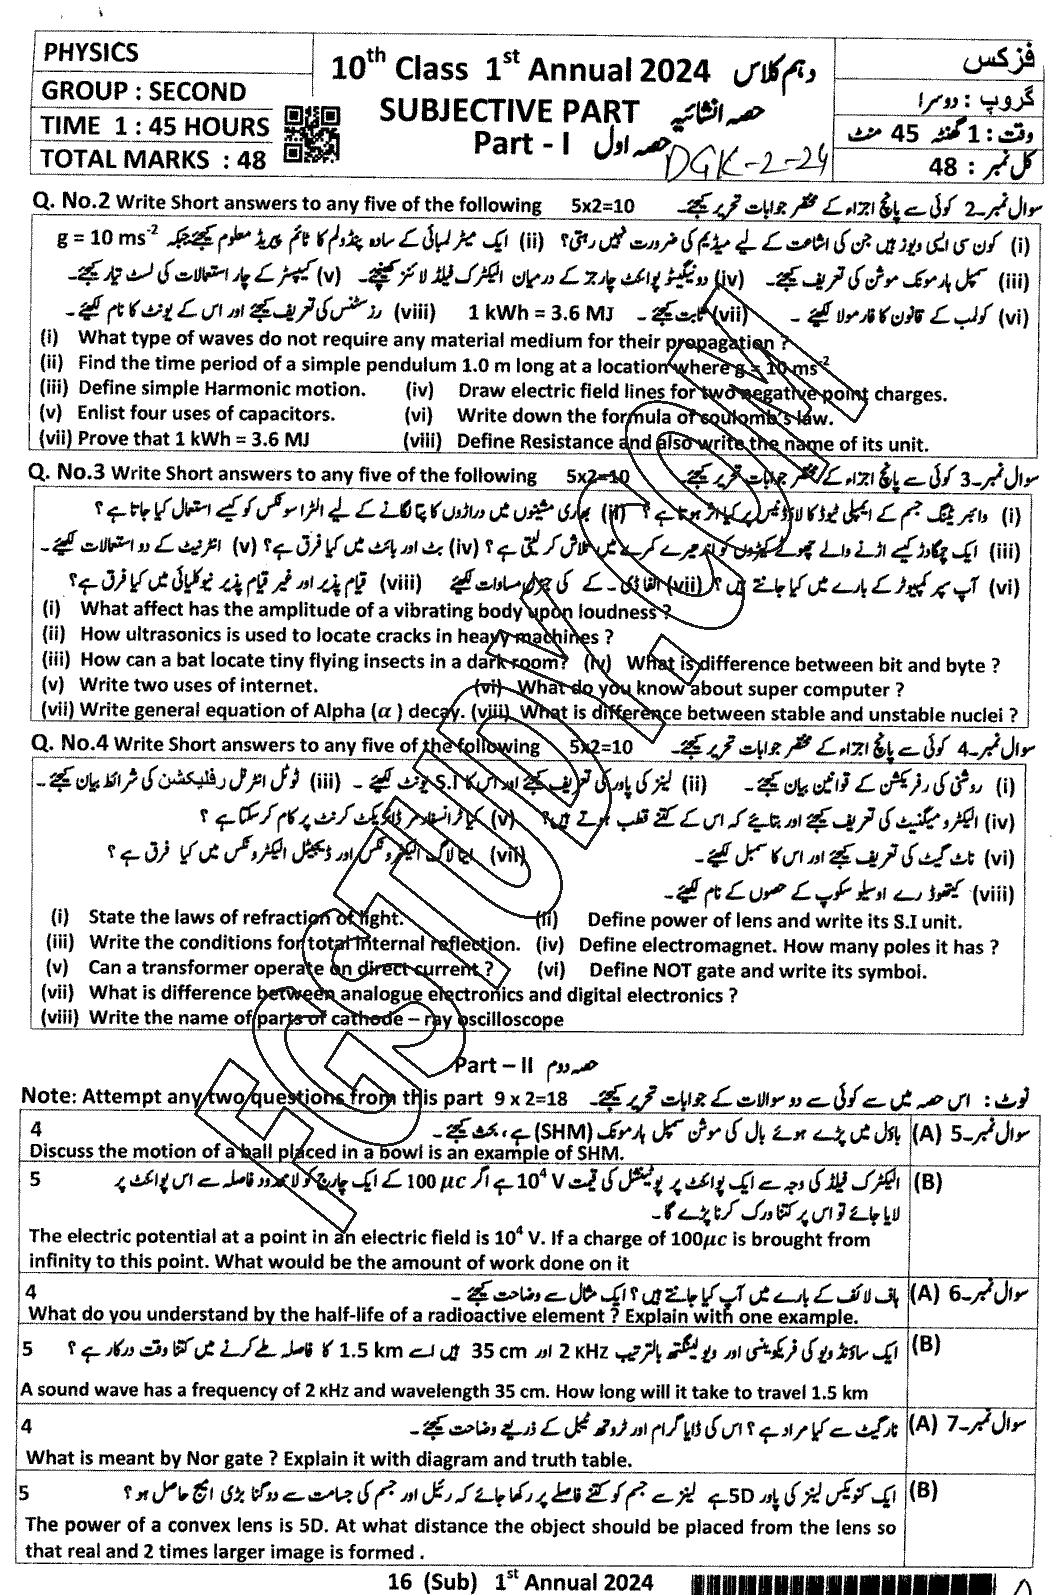 PHYSICS
GROUP : SECOND
TIME 1 : 45 HOURS
TOTAL MARKS : 48
10th Class 1st Annual 2024 دہم کلاس
SUBJECTIVE PART حصہ انشائیہ
Part - I حصہ اول
DGK-2-24
فزکس
گروپ : دوسرا
وقت : 1 گھنٹہ 45 منٹ
کل نمبر : 48
Q. No.2 Write Short answers to any five of the following 5x2=10 سوال نمبر-2 کوئی سے پانچ اجزاء کے مختصر جوابات تحریر کیجئے۔
(i) کون سی ایسی ویوز ہیں جن کی اشاعت کے لیے میڈیم کی ضرورت نہیں رہتی؟ (ii) ایک میٹر لمبائی کے سادہ پنڈولم کا ٹائم پیریڈ معلوم کیجئے جبکہ g = 10 ms-2
(iii) سمپل ہارمونک موشن کی تعریف کیجئے۔ (iv) دو نیگیٹو پوائنٹ چارجز کے درمیان الیکٹرک فیلڈ لائنز کھینچئے۔ (v) کپیسٹر کے چار استعمالات کی لسٹ تیار کیجئے۔
(vi) کولمب کے قانون کا فارمولا لکھیئے۔ (vii) ثابت کیجئے۔ 1 kWh = 3.6 MJ (viii) رزسٹنس کی تعریف کیجئے اور اس کے یونٹ کا نام لکھیئے۔
(i) What type of waves do not require any material medium for their propagation ?
(ii) Find the time period of a simple pendulum 1.0 m long at a location where g = 10 ms-2
(iii) Define simple Harmonic motion. (iv) Draw electric field lines for two negative point charges.
(v) Enlist four uses of capacitors. (vi) Write down the formula of coulomb's law.
(vii) Prove that 1 kWh = 3.6 MJ (viii) Define Resistance and also write the name of its unit.
Q. No.3 Write Short answers to any five of the following 5x2=10 سوال نمبر-3 کوئی سے پانچ اجزاء کے مختصر جوابات تحریر کیجئے۔
(i) وائبریٹنگ جسم کے ایمپلی ٹیوڈ کا لاؤڈنیس پر کیا اثر ہوتا ہے ؟ (ii) بھاری مشینوں میں دراڑوں کا پتا لگانے کے لیے الٹرا سونکس کو کیسے استعمال کیا جاتا ہے ؟
(iii) ایک چمگادڑ کیسے اڑنے والے چھوٹے کیڑوں کو اندھیرے کمرے میں تلاش کر لیتی ہے ؟ (iv) بٹ اور بائٹ میں کیا فرق ہے؟ (v) انٹرنیٹ کے دو استعمالات لکھیئے۔
(vi) آپ سپر کمپیوٹر کے بارے میں کیا جانتے ہیں ؟ (vii) الفا ڈی۔ کے کی جنرل مساوات لکھیئے (viii) قیام پذیر اور غیر قیام پذیر نیوکلیائی میں کیا فرق ہے؟
(i) What affect has the amplitude of a vibrating body upon loudness ?
(ii) How ultrasonics is used to locate cracks in heavy machines ?
(iii) How can a bat locate tiny flying insects in a dark room? (iv) What is difference between bit and byte ?
(v) Write two uses of internet. (vi) What do you know about super computer ?
(vii) Write general equation of Alpha (α) decay. (viii) What is difference between stable and unstable nuclei ?
Q. No.4 Write Short answers to any five of the following 5x2=10 سوال نمبر-4 کوئی سے پانچ اجزاء کے مختصر جوابات تحریر کیجئے۔
(i) روشنی کی رفریکشن کے قوانین بیان کیجئے۔ (ii) لینز کی پاور کی تعریف کیجئے اور اس کا S.I یونٹ لکھیئے۔ (iii) ٹوٹل انٹرنل رفلیکشن کی شرائط بیان کیجئے۔
(iv) الیکٹرومیگنیٹ کی تعریف کیجئے اور بتائیے کہ اس کے کتنے قطب ہوتے ہیں؟ (v) کیا ٹرانسفارمر ڈائریکٹ کرنٹ پر کام کر سکتا ہے ؟
(vi) ناٹ گیٹ کی تعریف کیجئے اور اس کا سمبل لکھیئے۔ (vii) اینالاگ الیکٹرونکس اور ڈیجیٹل الیکٹرونکس میں کیا فرق ہے ؟
(viii) کیتھوڈ رے اوسیلوسکوپ کے حصوں کے نام لکھیئے۔
(i) State the laws of refraction of light. (ii) Define power of lens and write its S.I unit.
(iii) Write the conditions for total internal reflection. (iv) Define electromagnet. How many poles it has ?
(v) Can a transformer operate on direct current ? (vi) Define NOT gate and write its symbol.
(vii) What is difference between analogue electronics and digital electronics ?
(viii) Write the name of parts of cathode – ray oscilloscope
Part – II حصہ دوم
Note: Attempt any two questions from this part 9 x 2=18 نوٹ : اس حصہ میں سے کوئی سے دو سوالات کے جوابات تحریر کیجئے۔
سوال نمبر-5 (A) باؤل میں پڑے ہوئے بال کی موشن سمپل ہارمونک (SHM) ہے، بحث کیجئے۔ 4
Discuss the motion of a ball placed in a bowl is an example of SHM.
(B) الیکٹرک فیلڈ کی وجہ سے ایک پوائنٹ پر پوٹینشل کی قیمت 104 V ہے اگر 100 μc کے ایک چارج کو لامحدود فاصلہ سے اس پوائنٹ پر 5
لایا جائے تو اس پر کتنا ورک کرنا پڑے گا۔
The electric potential at a point in an electric field is 104 V. If a charge of 100μc is brought from
infinity to this point. What would be the amount of work done on it
سوال نمبر-6 (A) ہاف لائف کے بارے میں آپ کیا جانتے ہیں ؟ ایک مثال سے وضاحت کیجئے۔ 4
What do you understand by the half-life of a radioactive element ? Explain with one example.
(B) ایک ساؤنڈ ویو کی فریکوئنسی اور ویو لینگتھ بالترتیب 2 KHz اور 35 cm ہیں اسے 1.5 km کا فاصلہ طے کرنے میں کتنا وقت درکار ہے ؟ 5
A sound wave has a frequency of 2 KHz and wavelength 35 cm. How long will it take to travel 1.5 km
سوال نمبر-7 (A) نار گیٹ سے کیا مراد ہے ؟ اس کی ڈایا گرام اور ٹروتھ ٹیبل کے ذریعے وضاحت کیجئے۔ 4
What is meant by Nor gate ? Explain it with diagram and truth table.
(B) ایک کنویکس لینز کی پاور 5D ہے لینز سے جسم کو کتنے فاصلے پر رکھا جائے کہ رئیل اور جسم کی جسامت سے دوگنا بڑی امیج حاصل ہو؟ 5
The power of a convex lens is 5D. At what distance the object should be placed from the lens so
that real and 2 times larger image is formed .
16 (Sub) 1st Annual 2024
FGSTUDY.COM